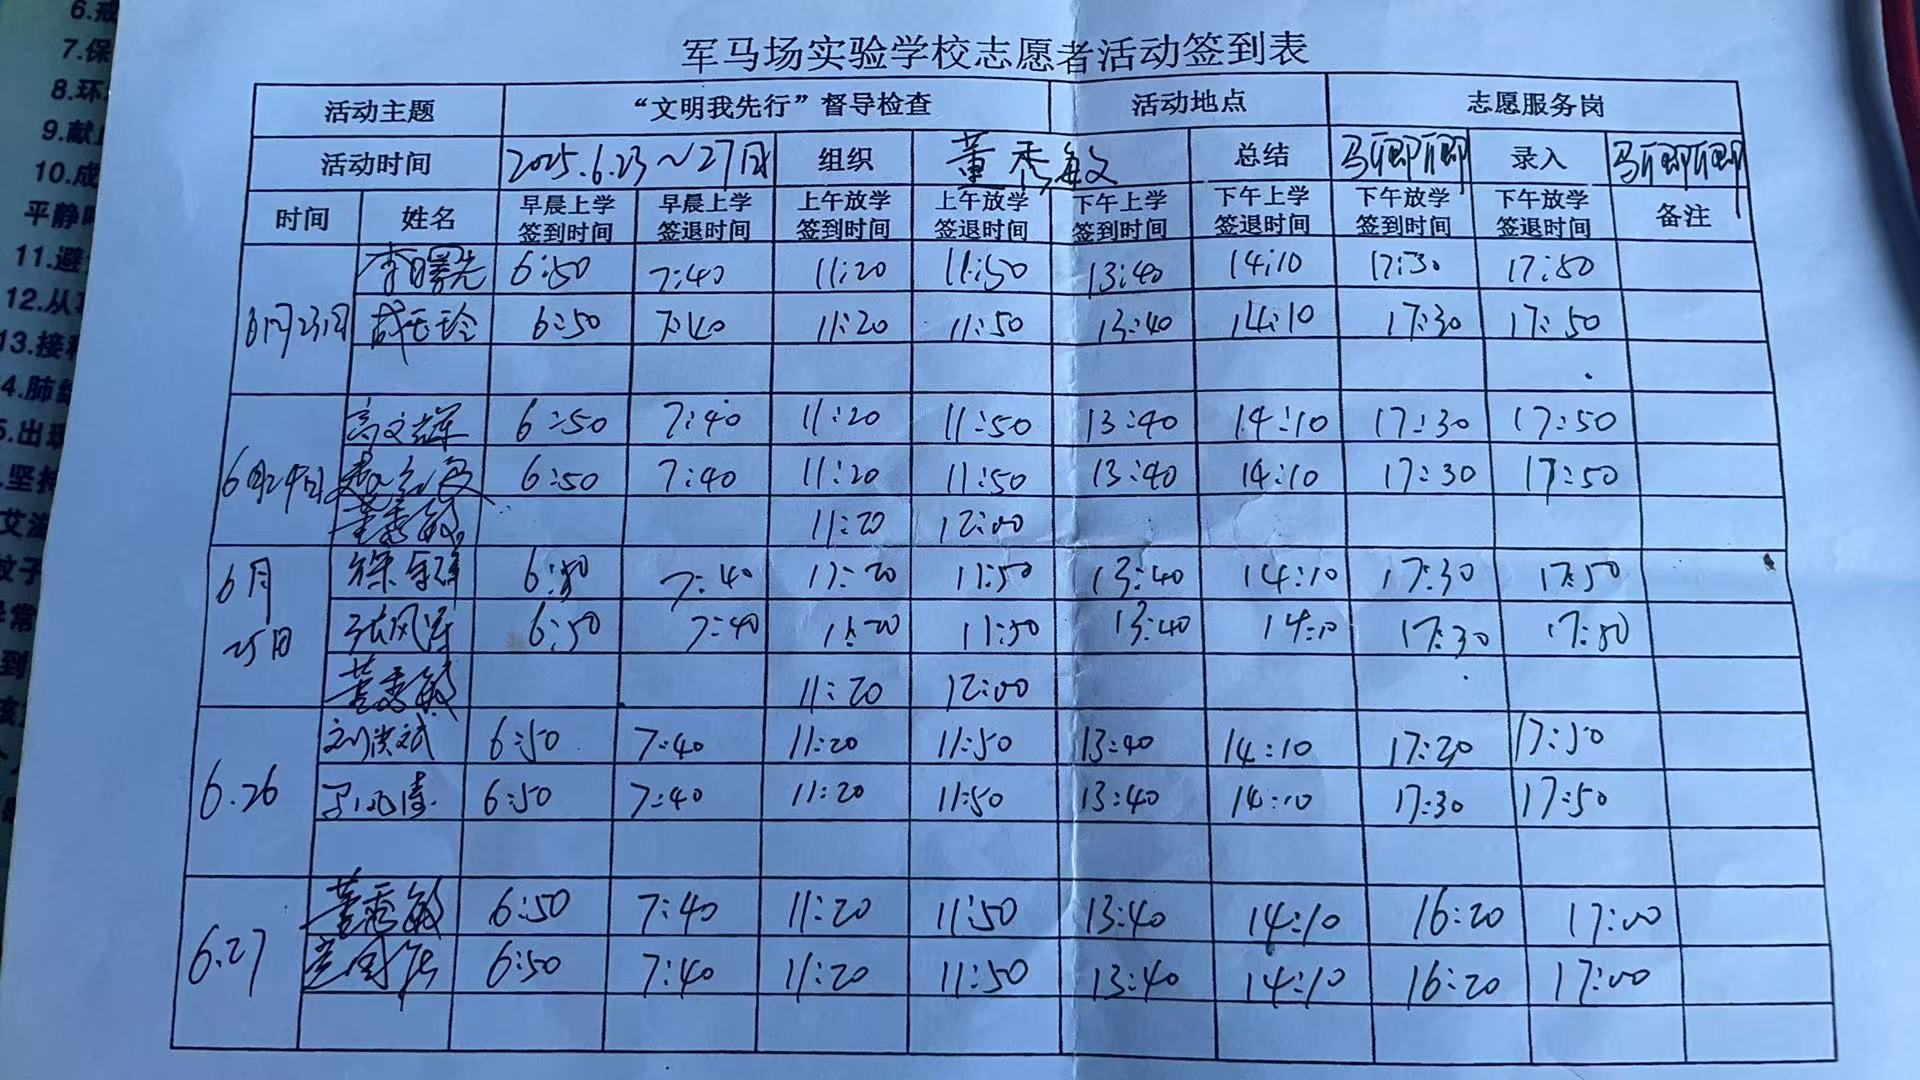 6.戒
7.保
8.环
9.献
10.成
平静
11.避
12.从
13.接种
4.肺结
5.出现
.坚持
艾滋
蚊子
异常
到
军马场实验学校志愿者活动签到表
活动主题 “文明我先行”督导检查 活动地点 志愿服务岗
活动时间 2025.6.23~27日 组织 董秀敏 总结 马卿卿 录入 马卿卿
时间 姓名 早晨上学签到时间 早晨上学签退时间 上午放学签到时间 上午放学签退时间 下午上学签到时间 下午上学签退时间 下午放学签到时间 下午放学签退时间 备注
6月23日 李曙光 6:50 7:40 11:20 11:50 13:40 14:10 17:30 17:50
6:50 7:40 11:20 11:50 13:40 14:10 17:30 17:50
6月24日 高文辉 6:50 7:40 11:20 11:50 13:40 14:10 17:30 17:50
6:50 7:40 11:20 11:50 13:40 14:10 17:30 17:50
董秀敏 11:20 12:00
6月25日 6:50 7:40 11:20 11:50 13:40 14:10 17:30 17:50
张风 6:50 7:40 11:20 11:50 13:40 14:10 17:30 17:50
董秀敏 11:20 12:00
6.26 刘洪斌 6:50 7:40 11:20 11:50 13:40 14:10 17:20 17:50
6:50 7:40 11:20 11:50 13:40 14:10 17:30 17:50
6.27 董秀敏 6:50 7:40 11:20 11:50 13:40 14:10 16:20 17:00
6:50 7:40 11:20 11:50 13:40 14:10 16:20 17:00